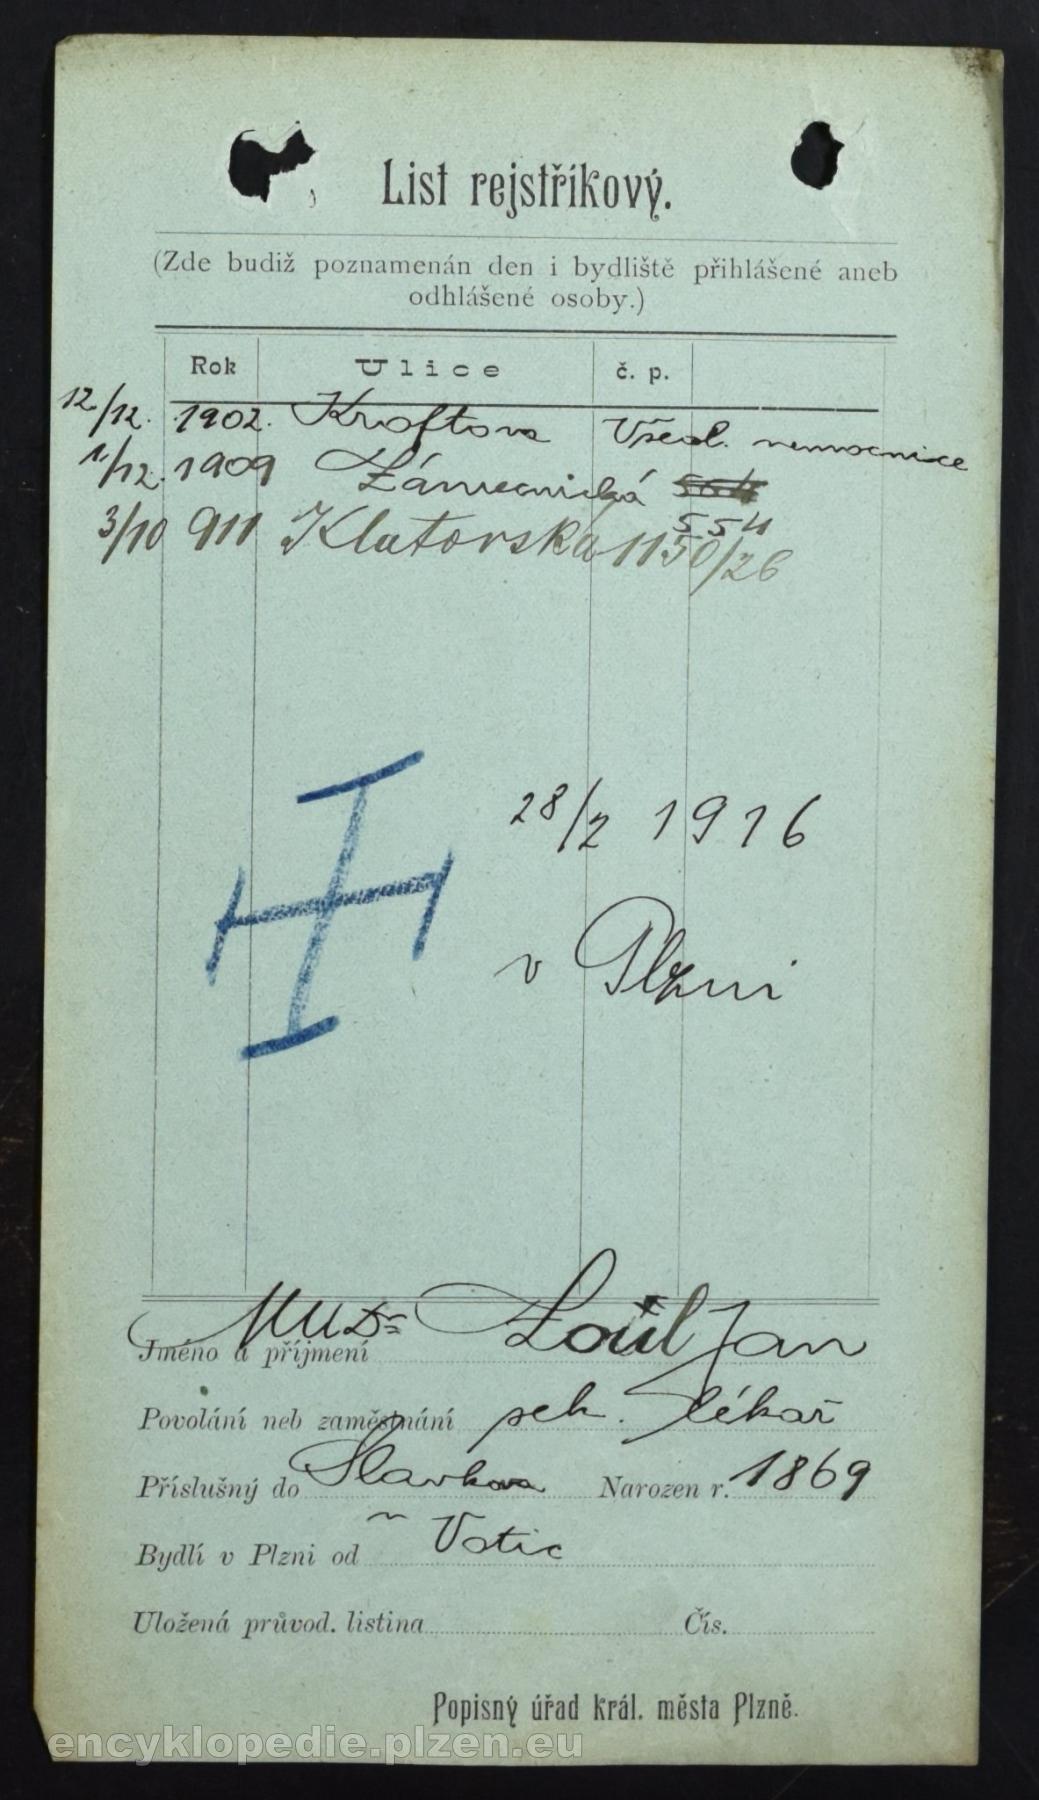 List rejstříkový.
(Zde budiž poznamenán den i bydliště přihlášené aneb
odhlášené osoby.)
Rok Ulice č. p.
12/12. 1902. Kroftova Všeob. nemocnice
1/12. 1909 Zámečnická
554
3/10 911 Klatovská 1150/26
28/2 1916
v Plzni
MUDr Jan
Jméno a příjmení
Povolání neb zaměstnání sek. lékař
Příslušný do Slavkova Narozen r. 1869
u Votic
Bydlí v Plzni od
Uložená průvod. listina Čís.
Popisný úřad král. města Plzně.
encyklopedie.plzen.eu